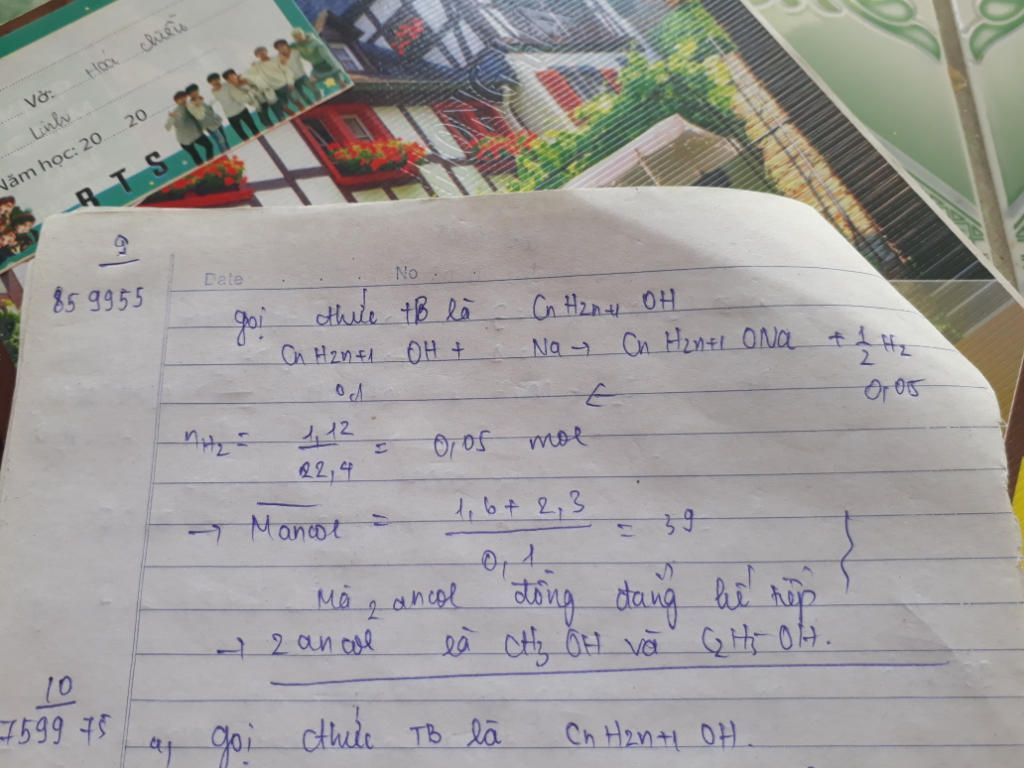 Vở: Hoá chiều
Linh
Năm học: 20 20
BTS
9
859955
Date No
gọi thức TB là CnH2n+1 OH
CnH2n+1 OH + Na → CnH2n+1 ONa + 1/2 H2
0,1 ← 0,05
nH2 = 1,12/22,4 = 0,05 mol
→ Mancol = 1,6 + 2,3 / 0,1 = 39
Mà 2 ancol đồng đẳng kế tiếp
→ 2 ancol là CH3 OH và C2H5-OH.
10
759975
a, gọi cthức TB là CnH2n+1 OH.